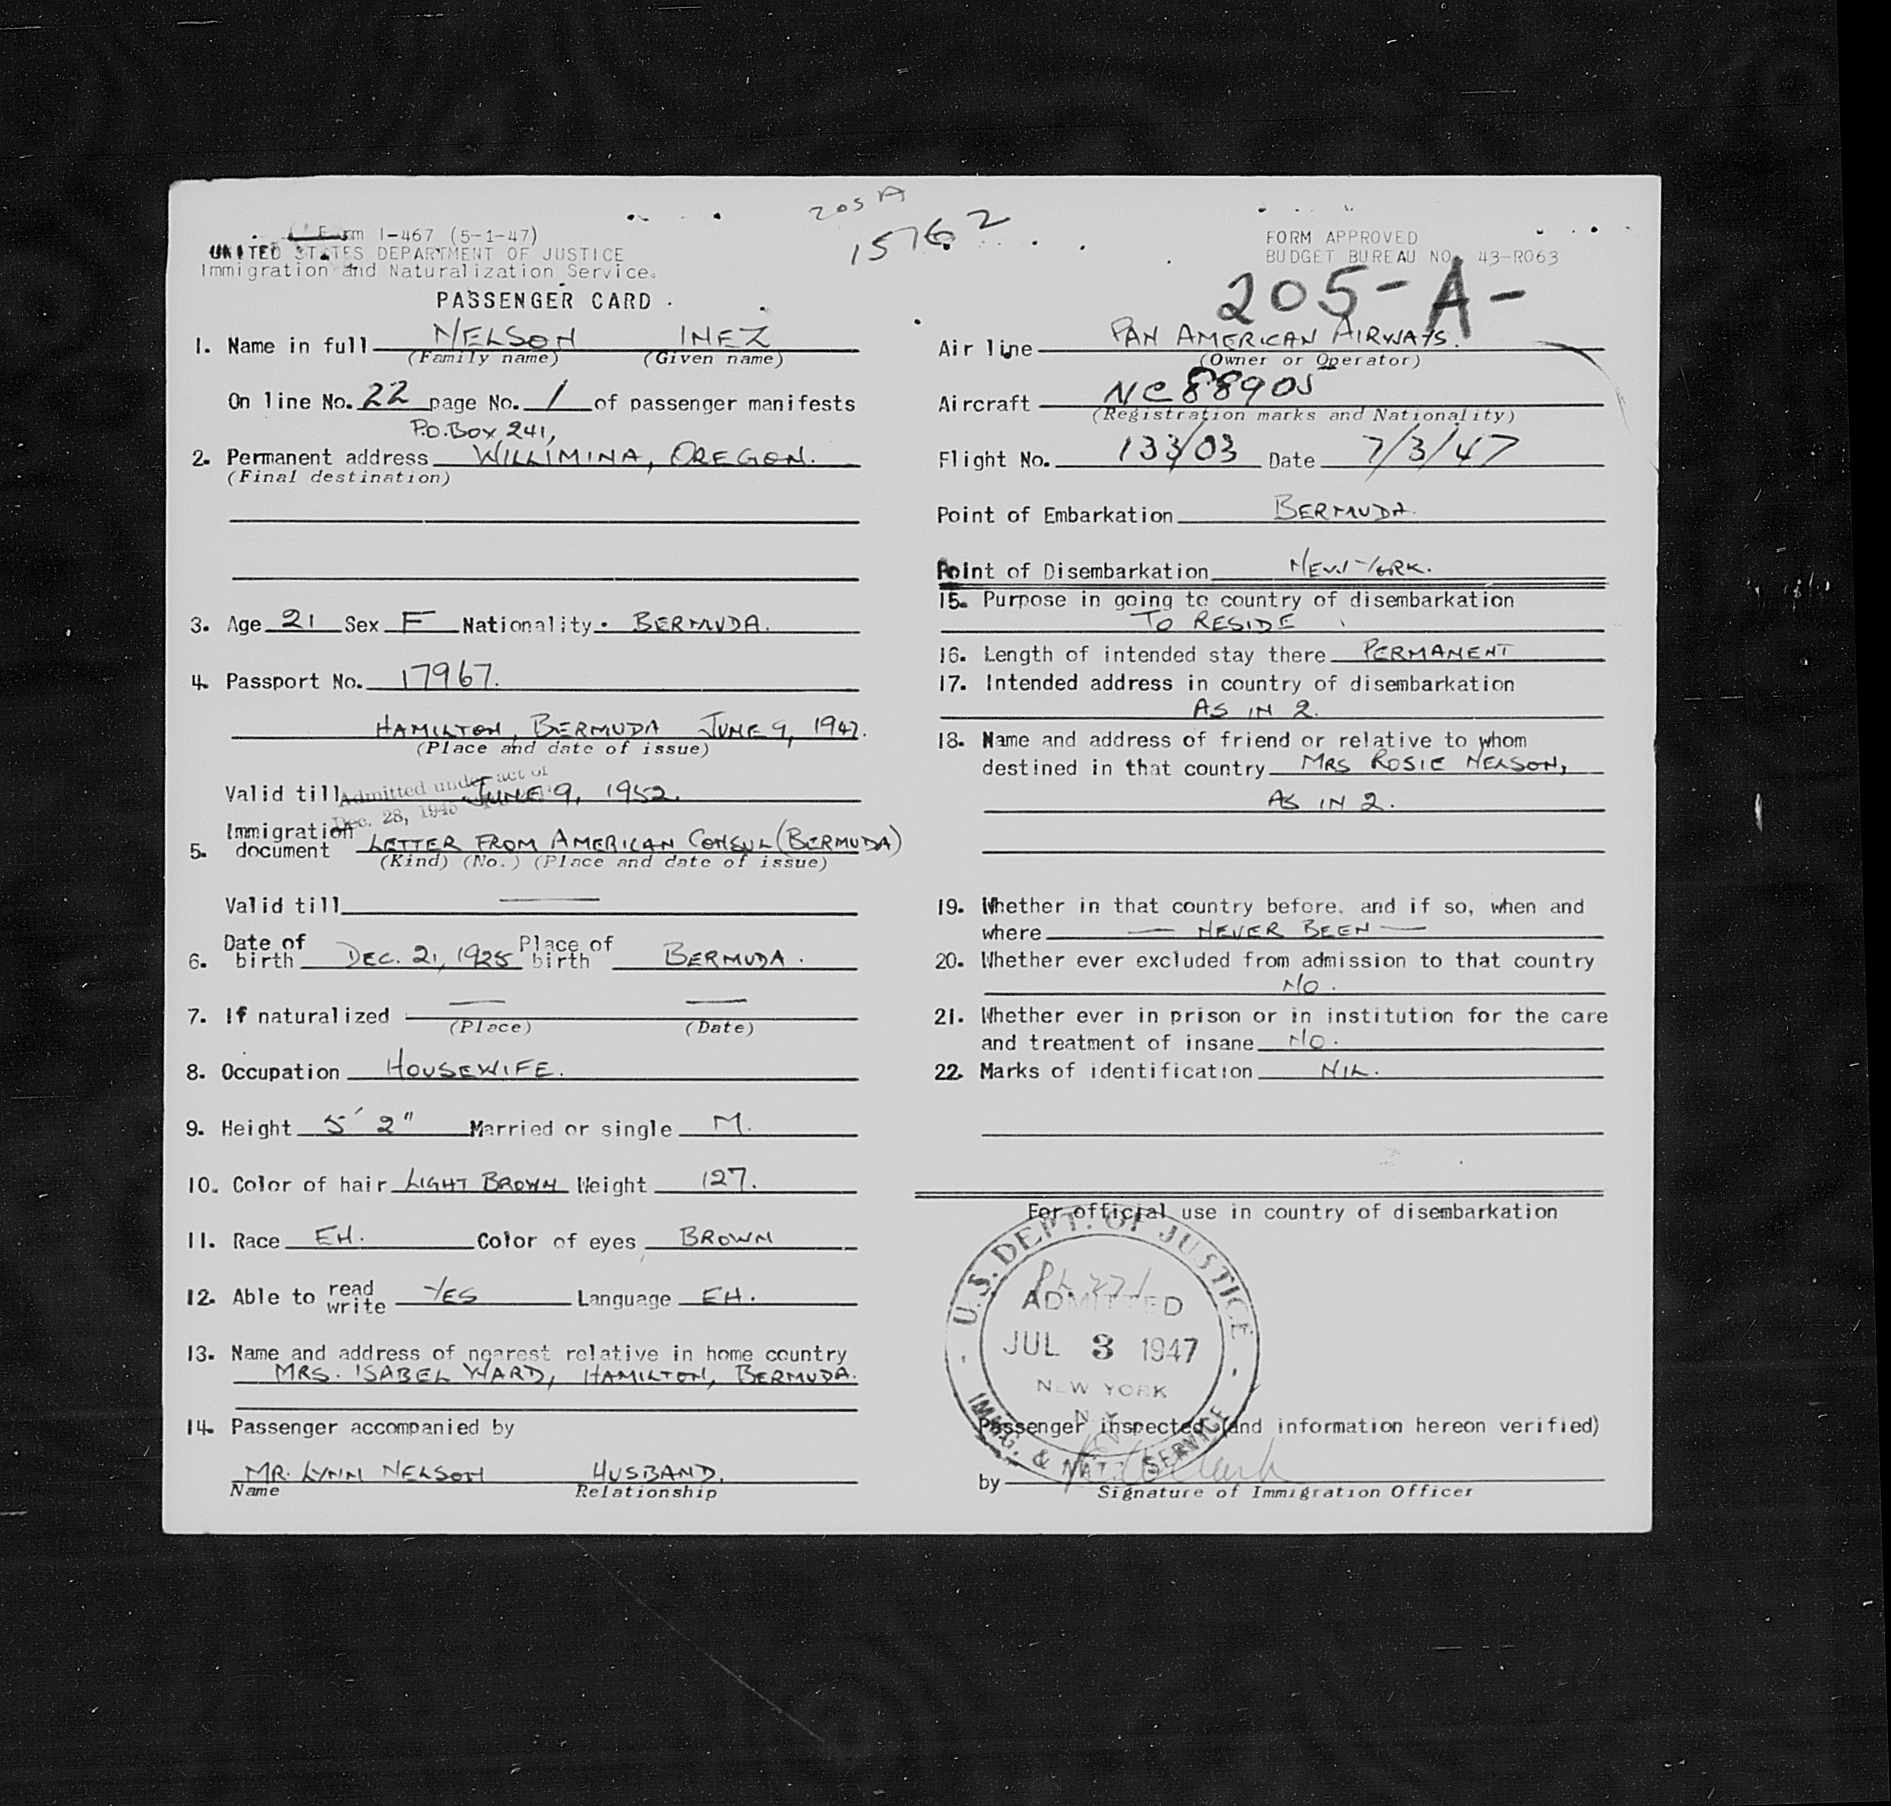 205 A
15762
Form I-467 (5-1-47)
UNITED STATES DEPARTMENT OF JUSTICE
Immigration and Naturalization Service.
PASSENGER CARD
FORM APPROVED
BUDGET BUREAU NO. 43-R063
205-A-
1. Name in full NELSON INEZ
(Family name) (Given name)
On line No. 22 page No. 1 of passenger manifests
P.O. BOX 241,
2. Permanent address WILLIMINA, OREGON.
(Final destination)
3. Age 21 Sex F Nationality BERMUDA.
4. Passport No. 17967.
HAMILTON, BERMUDA JUNE 9, 1947.
(Place and date of issue)
Admitted under act of
Valid till JUNE 9, 1952.
Dec. 28, 1945
5. Immigration document LETTER FROM AMERICAN CONSUL (BERMUDA)
(Kind) (No.) (Place and date of issue)
Valid till —
6. Date of birth DEC. 21, 1925 Place of birth BERMUDA.
7. If naturalized — —
(Place) (Date)
8. Occupation HOUSEWIFE.
9. Height 5' 2" Married or single M.
10. Color of hair LIGHT BROWN Weight 127.
11. Race EH. Color of eyes BROWN
12. Able to read write YES Language EH.
13. Name and address of nearest relative in home country
MRS. ISABEL WARD, HAMILTON, BERMUDA.
14. Passenger accompanied by
MR. LYNN NELSON HUSBAND.
Name Relationship
Air line PAN AMERICAN AIRWAYS.
(Owner or Operator)
Aircraft NC 88905
(Registration marks and Nationality)
Flight No. 133/03 Date 7/3/47
Point of Embarkation BERMUDA.
Point of Disembarkation NEW YORK.
15. Purpose in going to country of disembarkation
TO RESIDE
16. Length of intended stay there PERMANENT
17. Intended address in country of disembarkation
AS IN 2.
18. Name and address of friend or relative to whom
destined in that country MRS ROSIE NELSON,
AS IN 2.
19. Whether in that country before, and if so, when and
where — NEVER BEEN —
20. Whether ever excluded from admission to that country
NO.
21. Whether ever in prison or in institution for the care
and treatment of insane NO.
22. Marks of identification NIL.
For official use in country of disembarkation
U.S. DEPT. OF JUSTICE
P.L. 271
ADMITTED
JUL 3 1947
NEW YORK
N.Y.
IMMG. & NATZ. SERVICE
Passenger inspected (and information hereon verified)
by
Signature of Immigration Officer